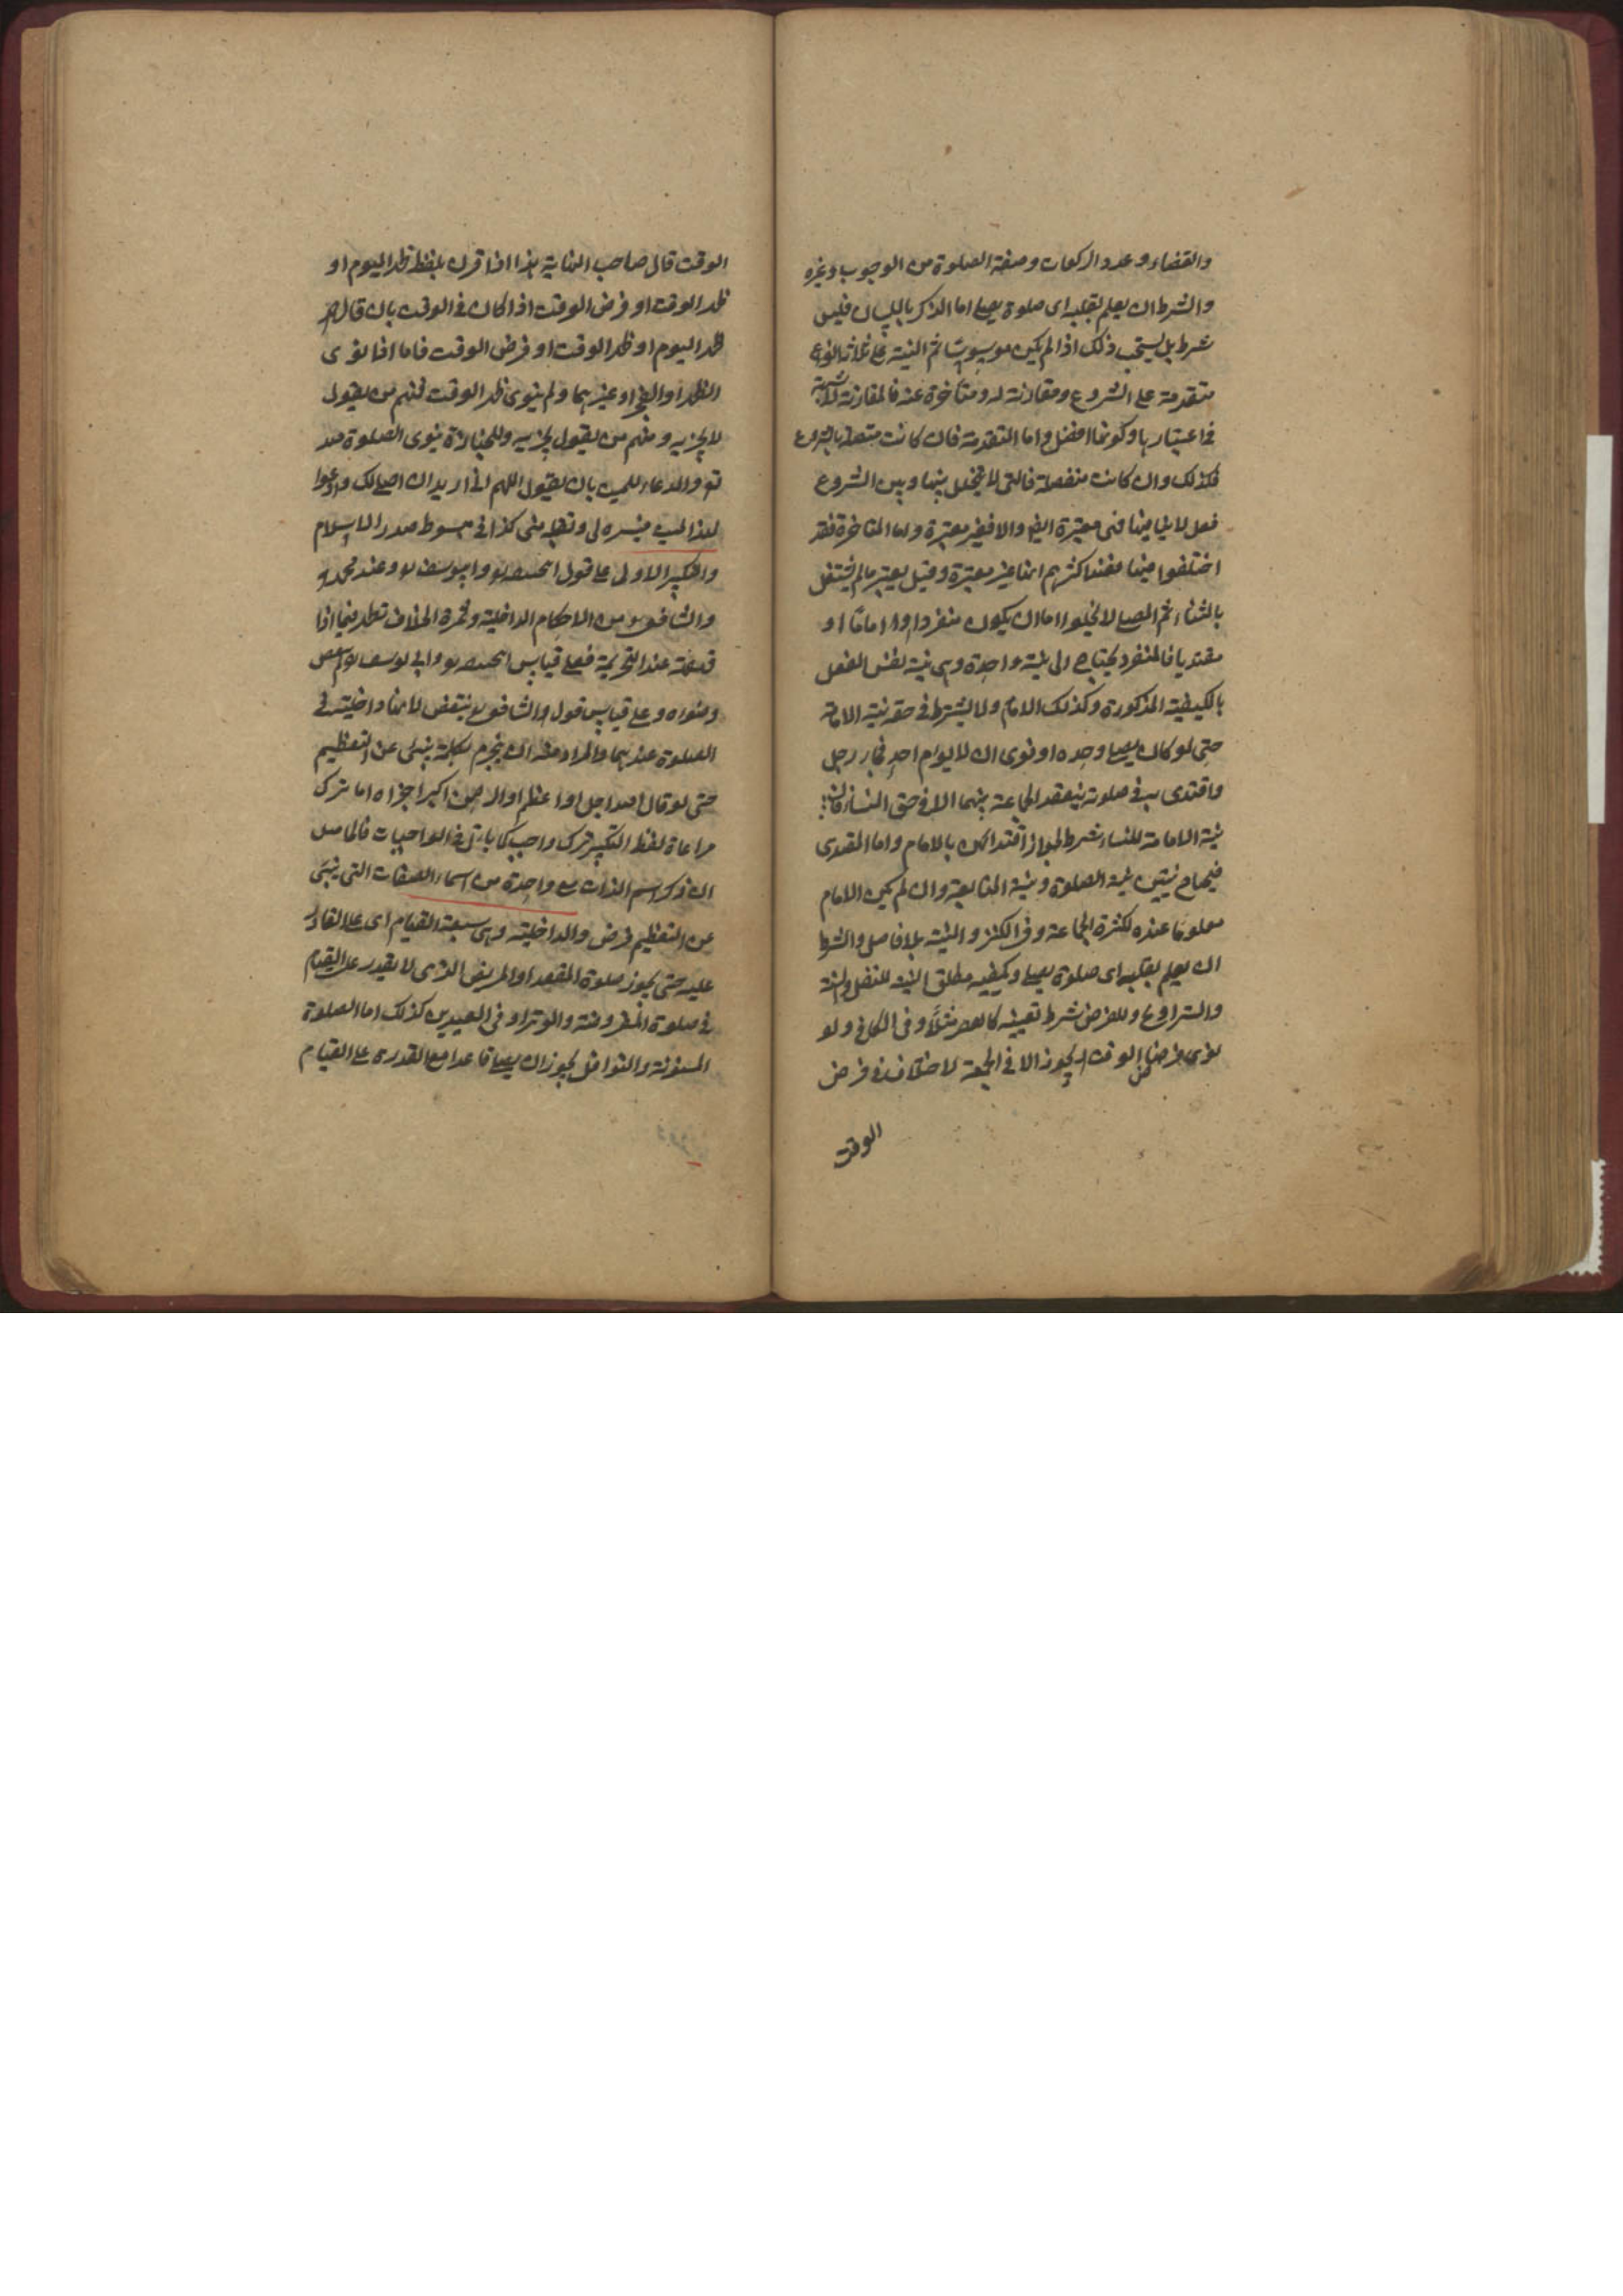 والقضاء وعدد الركعات وصفة الصلوة من الوجوب وغيره
والشرط ان يعلم بقلبه اى صلوة يصلى اما الذكر باللسان فليس
بشرط بل يستحب ذلك اذا لم يكن موسوسًا ثم النية على ثلاثة انواع
متقدمة على الشروع ومقارنة له ومتأخرة عنه فالمقارنة لا شبهة
فى اعتبارها وكونها افضل واما المتقدمة فان كانت متصلة بالشروع
فكذلك وان كانت منفصلة فالتى لا تتخلل بينها وبين الشروع
فعل لا ينافيها فهى معتبرة ايضا والا فغير معتبرة واما المتاخرة فقد
اختلفوا فيها فعند اكثرهم انها غير معتبرة وقيل يعتبر مالم يشتغل
بالثناء ثم المصلى لا يخلوا اما ان يكون منفردا او امامًا او
مقتديا فالمنفرد يحتاج الى نية واحدة وهى نية نفس الفعل
بالكيفية المذكورة وكذلك الامام ولا يشترط فى حقه نية الامامة
حتى لو كان يصلى وحده او نوى ان لا يؤم احد فجاء رجل
واقتدى به فى صلوته ينعقد الجماعة بينهما الا فى حق النساء فان
نية الامامة للنساء شرط لجواز اقتدائهن بالامام واما المقتدى
فيحتاج نيتين نية الصلوة ونية المتابعة وان لم يكن الامام
معلومًا عنده لكثرة الجماعة وفى الكنز والنية بلا فاصل والشرط
ان يعلم بقلبه اى صلوة يصلى ويكفيه مطلق النية للنفل والسنة
والتراويح وللفرض شرط تعيينه كالعصر مثلًا وفى الكافى ولو
نوى فرض الوقت يجوز الا فى الجمعة لاختلاف فى فرض
الوقت
الوقت قال صاحب النهاية هذا اذا قرن بلفظ ظهر اليوم او
ظهر الوقت او فرض الوقت اذا كان فى الوقت بان قال
ظهر اليوم او ظهر الوقت او فرض الوقت فاما اذا نوى
الظهر او الفجر او غيرهما ولم ينوى ظهر الوقت فمنهم من يقول
لا يجزيه ومنهم من يقول يجزيه وللجنازة ينوى الصلوة لله
تع والدعاء للميت بان يقول اللهم انى اريد ان اصلى لك وادعوا
لهذا الميت فيسره لى وتقبله منى كذا فى مبسوط صدر الاسلام
والتكبير الاولى على قول ابيحنيفة وابيوسف وعند محمد
والشافعى من الاحكام الداخلية وثمرة الخلاف تظهر فيما اذا
قهقهة عند التحريمة فعلى قياس ابيحنيفة وابى يوسف لم ينتقض
وضوءه وعلى قياس قول والشافعى ينتقض لانها داخلية فى
الصلوة عندهما والمراد منه ان يحرم بكلمة ينبئ عن التعظيم
حتى لو قال الله اجل او اعظم او الرحمن اكبر اجزاه اما ترك
مراعاة لفظ التكبير ترك واجب كما يأتى فى الواجبات فالحاصل
ان ذكر اسم الذات مع واحدة من اسماء الصفات التى ينبئ
عن التعظيم فرض والداخلية وهى سبعة القيام اى على القادر
عليه حتى يجوز صلوة المقعد او المريض الذى لا يقدر على القيام
فى صلوة المفروضة والوتر او فى العيدين كذلك اما الصلوة
المسنونة والنوافل يجوز ان يصلى قاعدا مع القدرة على القيام